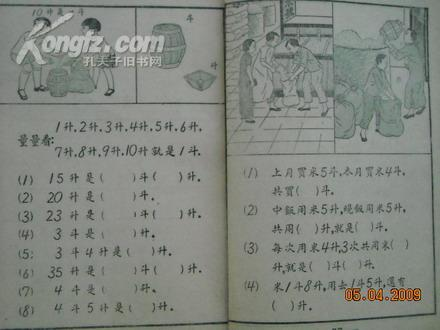 10升是一斗
斗
升
Kongfz.com
孔夫子旧书网
1升,2升,3升,4升,5升,6升,
量量看:
7升,8升,9升,10升就是1斗.
(1) 15升是( )斗( )升.
(2) 20升是( )斗.
(3) 23升是( )斗( )升.
(4) 3斗是( )升.
(5) 3斗4升是( )升.
(6) 35升是( )斗( )升.
(7) 4斗是( )升.
(8) 4斗5升是( )升.
(1) 上月買米5斗,本月買米4斗,
共買( )斗.
(2) 中飯用米5升,晚飯用米5升,
共用( )升,就是( )斗.
(3) 每次用米4升,3次共用米( )
升,就是( )斗( )升.
(4) 米1斗8升,用去1斗5升,還有
( )升.
05.04.2009